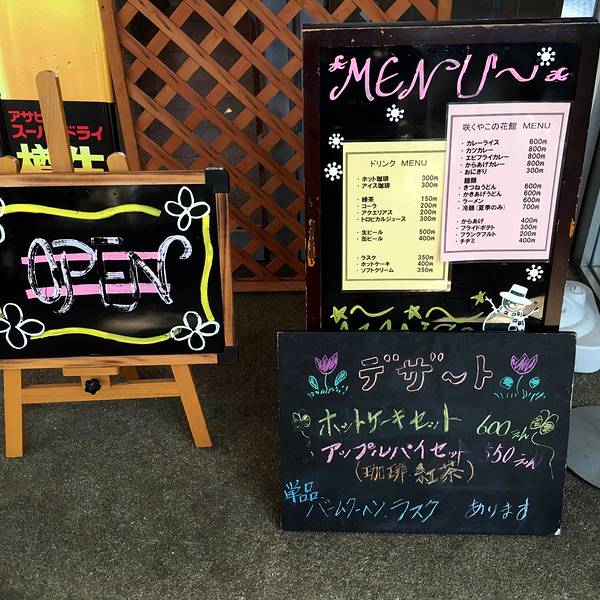 アサヒ
スーパードライ
OPEN
MENU〜
ドリンク MENU
・ホット珈琲 300円
・アイス珈琲 300円
・緑茶 150円
・コーラ 200円
・アクエリアス 200円
・トロピカルジュース 300円
・生ビール 500円
・缶ビール 400円
・ラスク 350円
・ホットケーキ 400円
・ソフトクリーム 350円
咲くやこの花館 MENU
・カレーライス 600円
・カツカレー 800円
・エビフライカレー 800円
・からあげカレー 800円
・おにぎり 300円
麺類
・きつねうどん 600円
・かきあげうどん 600円
・ラーメン 600円
・冷麺(夏季のみ) 700円
・からあげ 400円
・フライドポテト 300円
・フランクフルト 200円
・チヂミ 400円
デザ〜ト
ホットケーキセット 600えん
アップルパイセット 550えん
(珈琲.紅茶)
単品
バームクーヘン.ラスク あります